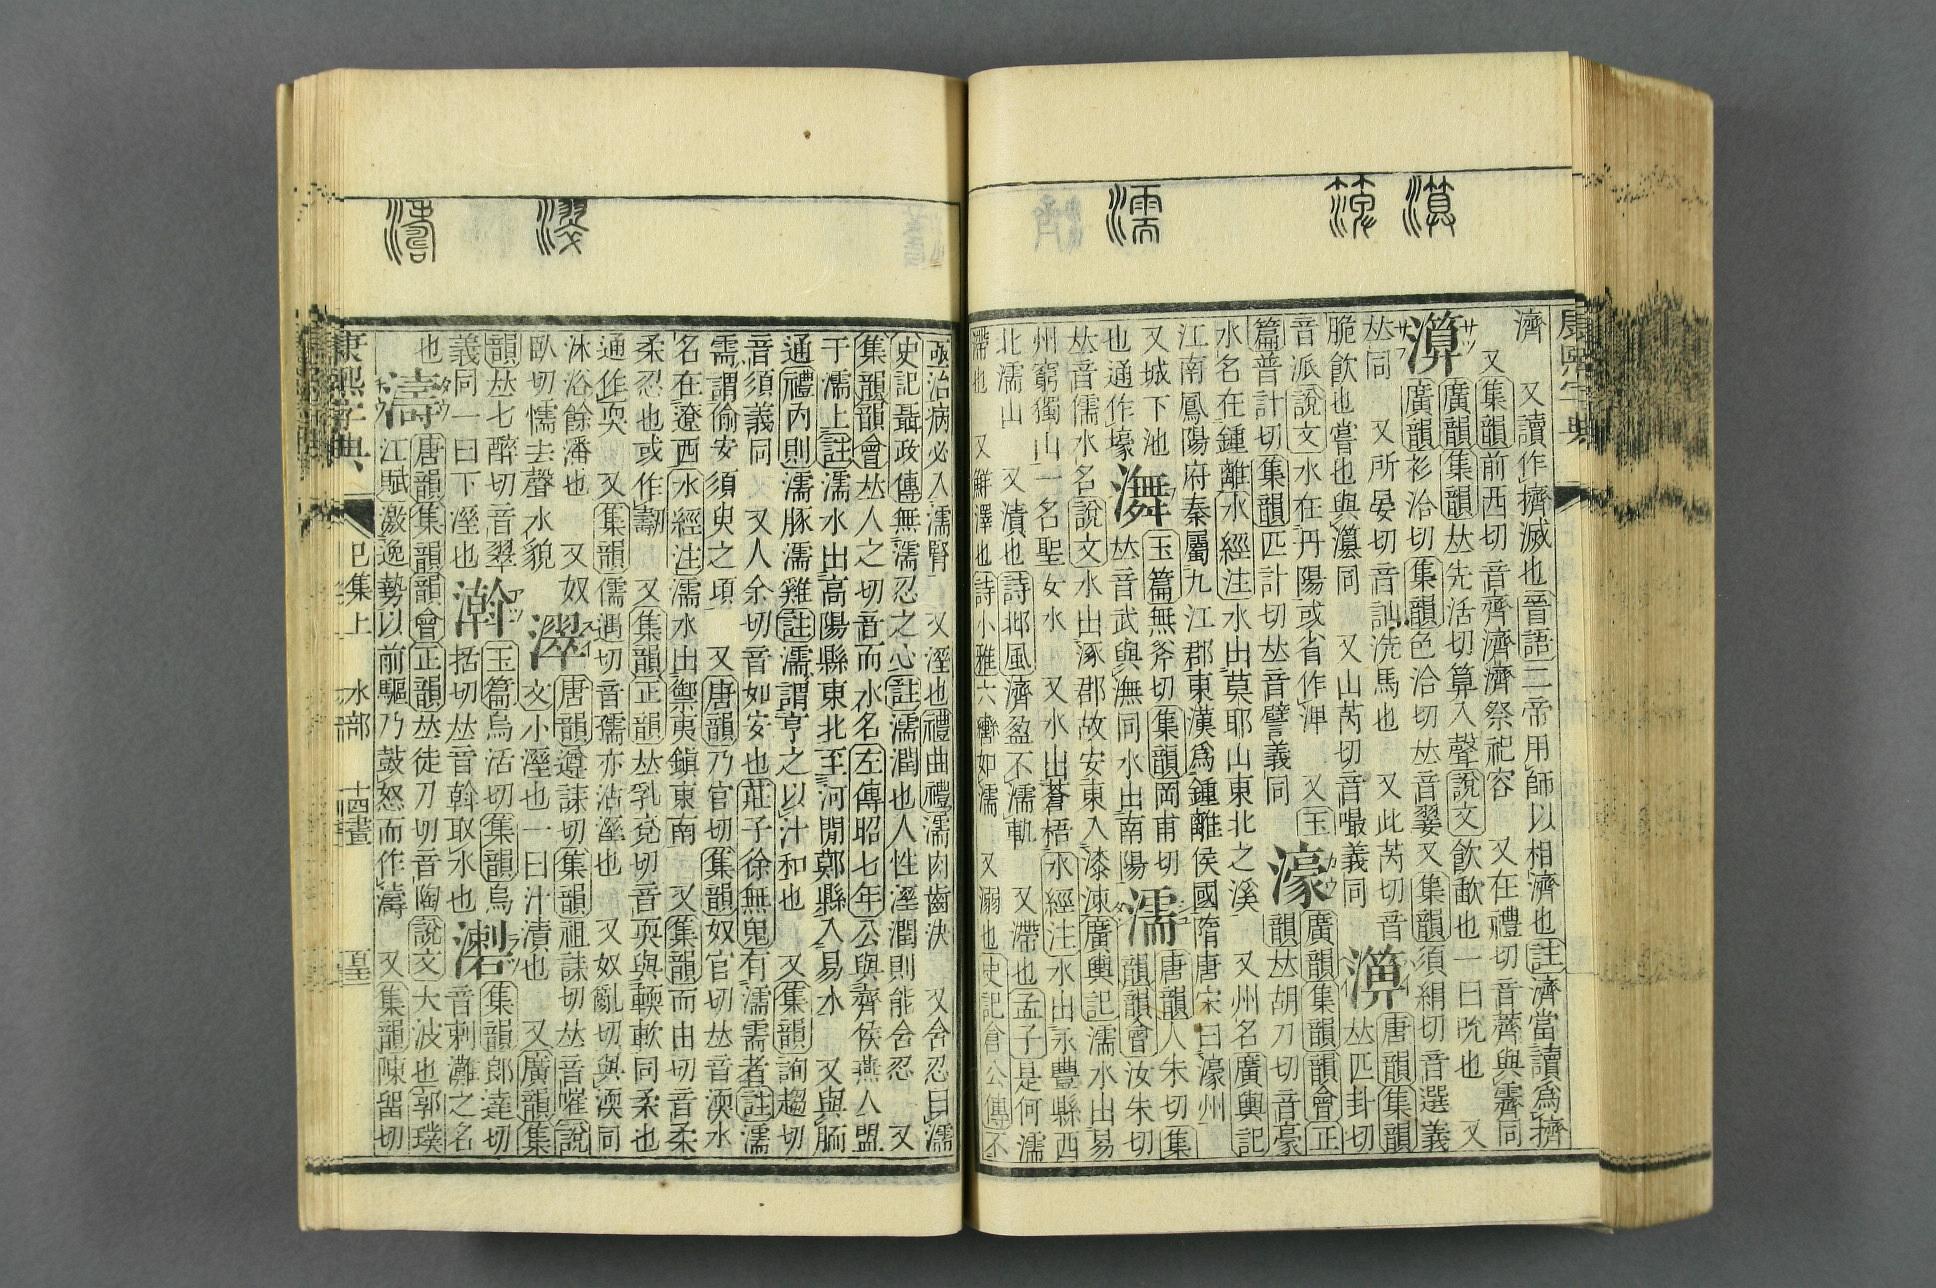 濟 又讀作擠滅也晉語二帝用師以相濟也註濟當讀爲擠
又集韻前西切音齊濟濟祭祀容 又在禮切音薺與霽同
廣韻集韻𠀤先活切算入聲說文飮歃也一曰吮也 又
廣韻衫洽切集韻色洽切𠀤音翣又集韻須絹切音選義
𠀤同 又所晏切音訕洗馬也 又此芮切音 唐韻集韻
脆飮也嘗也與 同 又山芮切音嘬義同 𠀤匹卦切
音派說文水在丹陽或省作淠 又玉 濠 廣韻集韻韻會正
篇普計切集韻匹計切𠀤音譬義同 韻𠀤胡刀切音豪
水名在鍾離水經注水出莫耶山東北之溪 又州名廣輿記
江南鳳陽府秦屬九江郡東漢爲鍾離侯國隋唐宋曰濠州
又城下池 玉篇無斧切集韻岡甫切 濡 唐韻人朱切集
也通作壕 潕 𠀤音武與潕同水出南陽 韻韻會汝朱切
𠀤音儒水名說文水出涿郡故安東入漆涑廣輿記濡水出易
州窮獨山一名聖女水 又水出蒼梧水經注水出永豐縣西
北濡山 又漬也詩邶風濟盈不濡軌 又滯也孟子是何濡
滯也 又鮮澤也詩小雅六轡如濡 又溺也史記倉公傳不
亟治病必入濡腎 又溼也禮曲禮濡肉齒決 又含忍曰濡
史記聶政傳無濡忍之心註濡潤也人性溼潤則能含忍 又
集韻韻會𠀤人之切音而水名左傳昭七年公與齊侯燕人盟
于濡上註濡水出高陽縣東北至河閒鄭縣入易水 又與胹
通禮內則濡豚濡雞註濡謂亨之以汁和也 又集韻詢趨切
音須義同 又人余切音如安也莊子徐無鬼有濡需者註濡
需謂偷安須臾之頃 又唐韻乃官切集韻奴官切𠀤音渜水
名在遼西水經注濡水出禦夷鎮東南 又集韻而由切音柔
柔忍也或作 又集韻正韻𠀤乳兗切音耎與輭軟同柔也
通作耎 又集韻儒遇切音孺亦沾溼也 又奴亂切與渜同
沐浴餘潘也 又奴 濢 唐韻遵誄切集韻祖誄切𠀤音嶉說
臥切懦去聲水貌 文小溼也一曰汁漬也 又廣韻集
韻𠀤七醉切音翠 澣 玉篇烏活切集韻烏 集韻郎達切
義同一曰下溼也 括切𠀤音斡取水也 音剌灘之名
也 濤 唐韻集韻韻會正韻𠀤徒刀切音陶說文大波也郭璞
江賦激逸勢以前驅乃鼓怒而作濤 又集韻陳留切
康熙字典 巳集上 水部 十四畫